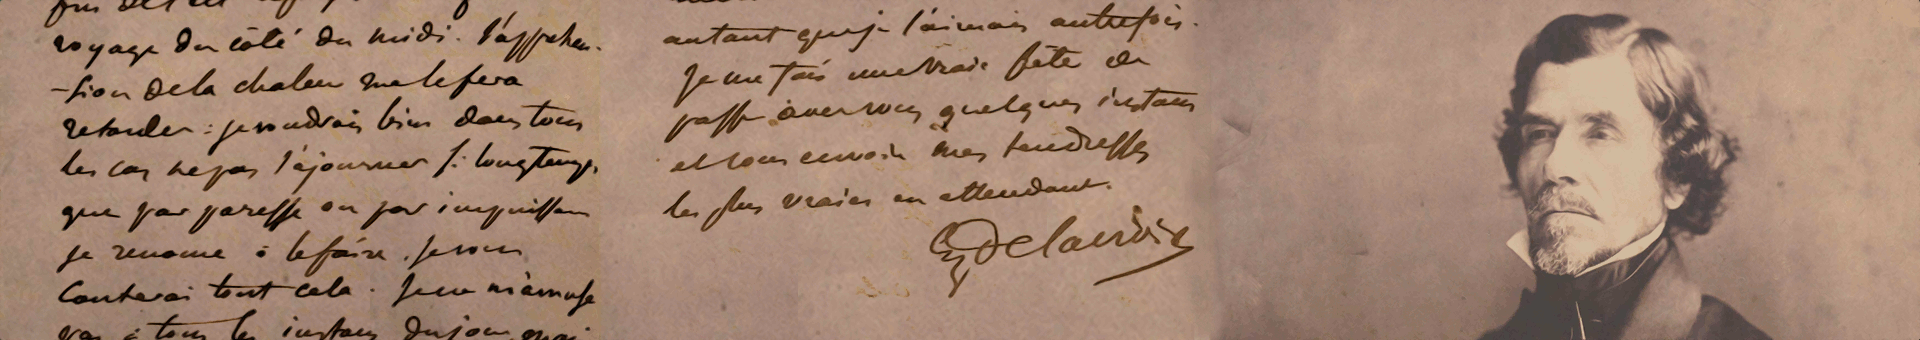 voyage du côté du midi. l'appréhen-
-sion de la chaleur me le fera
retarder : je voudrais bien dans tous
les cas ne pas l'ajourner si longtemps,
que par paresse ou par impuissance
je renonce à le faire. je vous
conterai tout cela. Je ne m'amuse
pas à tous les instans du jour,
autant que je l'aimais autrefois.
Je me fais une vraie fête de
passer avec vous quelques instans
et vous envoie mes tendresses
les plus vraies en attendant.
EugDelacroix